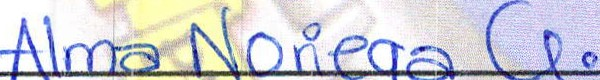 Alma Noriega G.